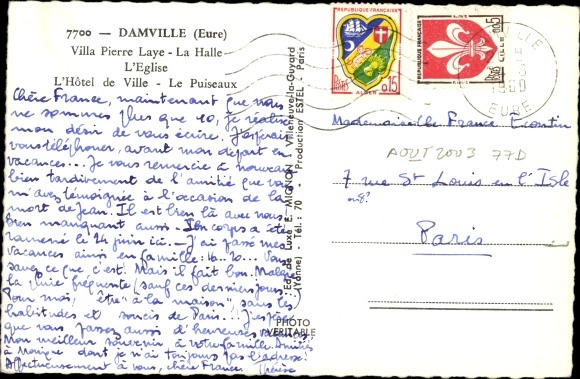 7700 — DAMVILLE (Eure)
Villa Pierre Laye - La Halle
L'Eglise
L'Hôtel de Ville - Le Puiseaux
Chère France, maintenant que nous
ne sommes plus que 10, je réalise
mon désir de vous écrire. J'espérais
vous téléphoner, avant mon départ en
vacances... Je vous remercie à nouveau
bien tardivement de l'amitié que vous
m'avez témoignée à l'occasion de la
mort de Jean. Il est bien là avec nous
bien manquant aussi. Son corps a été
ramené le 24 juin ici. — J'ai passé mes
vacances ainsi en famille: Vous
savez ce que c'est. Mais il fait bon. Malgré
la pluie fréquente (sauf ces derniers jours)
Pour moi, être "à la maison" sans les
habitudes et soucis de Paris... J'espère
que vous passez aussi d'heureuses vacances
Mon meilleur souvenir à votre famille. Amitiés
à Monique dont je n'ai toujours pas l'adresse!
Affectueusement à vous, chère France. Thérèse
Ed. de Luxe E. MIGNON - Villeneuve-la-Guyard
(Yonne) - Tél.: 70 - Production ESTEL - Paris
PHOTO
VERITABLE
REPUBLIQUE FRANÇAISE
POSTES
0,15
ALGER
REPUBLIQUE FRANÇAISE
0,05
LILLE
EURE
Mademoiselle France Écontin
AOUT 2003 77D
7 rue St Louis en l'Isle
Paris